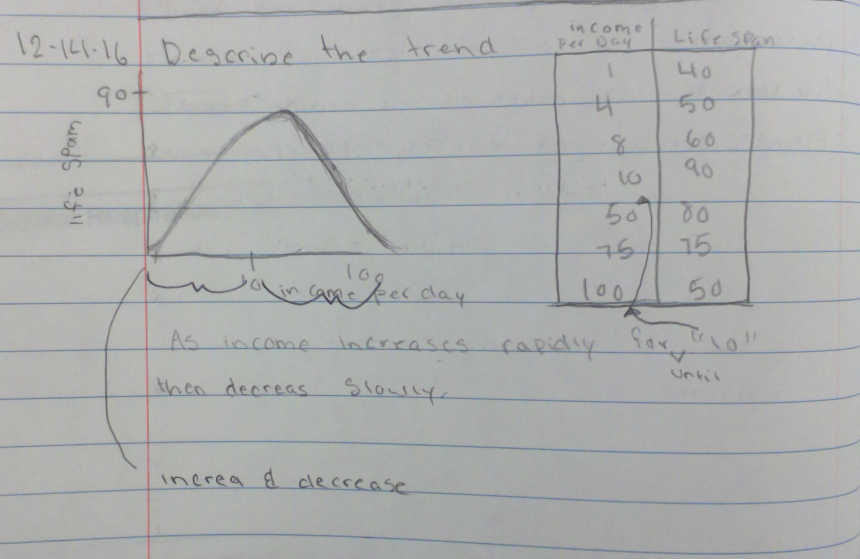 12-14-16 Describe the trend
90
life spam
10
100
income per day
income per Day | Life span
1 40
4 50
8 60
10 90
50 80
75 75
100 50
As income increases rapidly for "10"
until
then decreas slowly.
increa & decrease